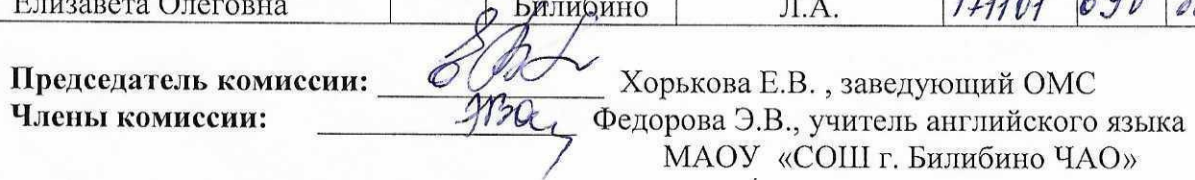 Елизавета Олеговна Билибино Л.А. 171101
Председатель комиссии: Хорькова Е.В. , заведующий ОМС
Члены комиссии: Федорова Э.В., учитель английского языка
МАОУ «СОШ г. Билибино ЧАО»